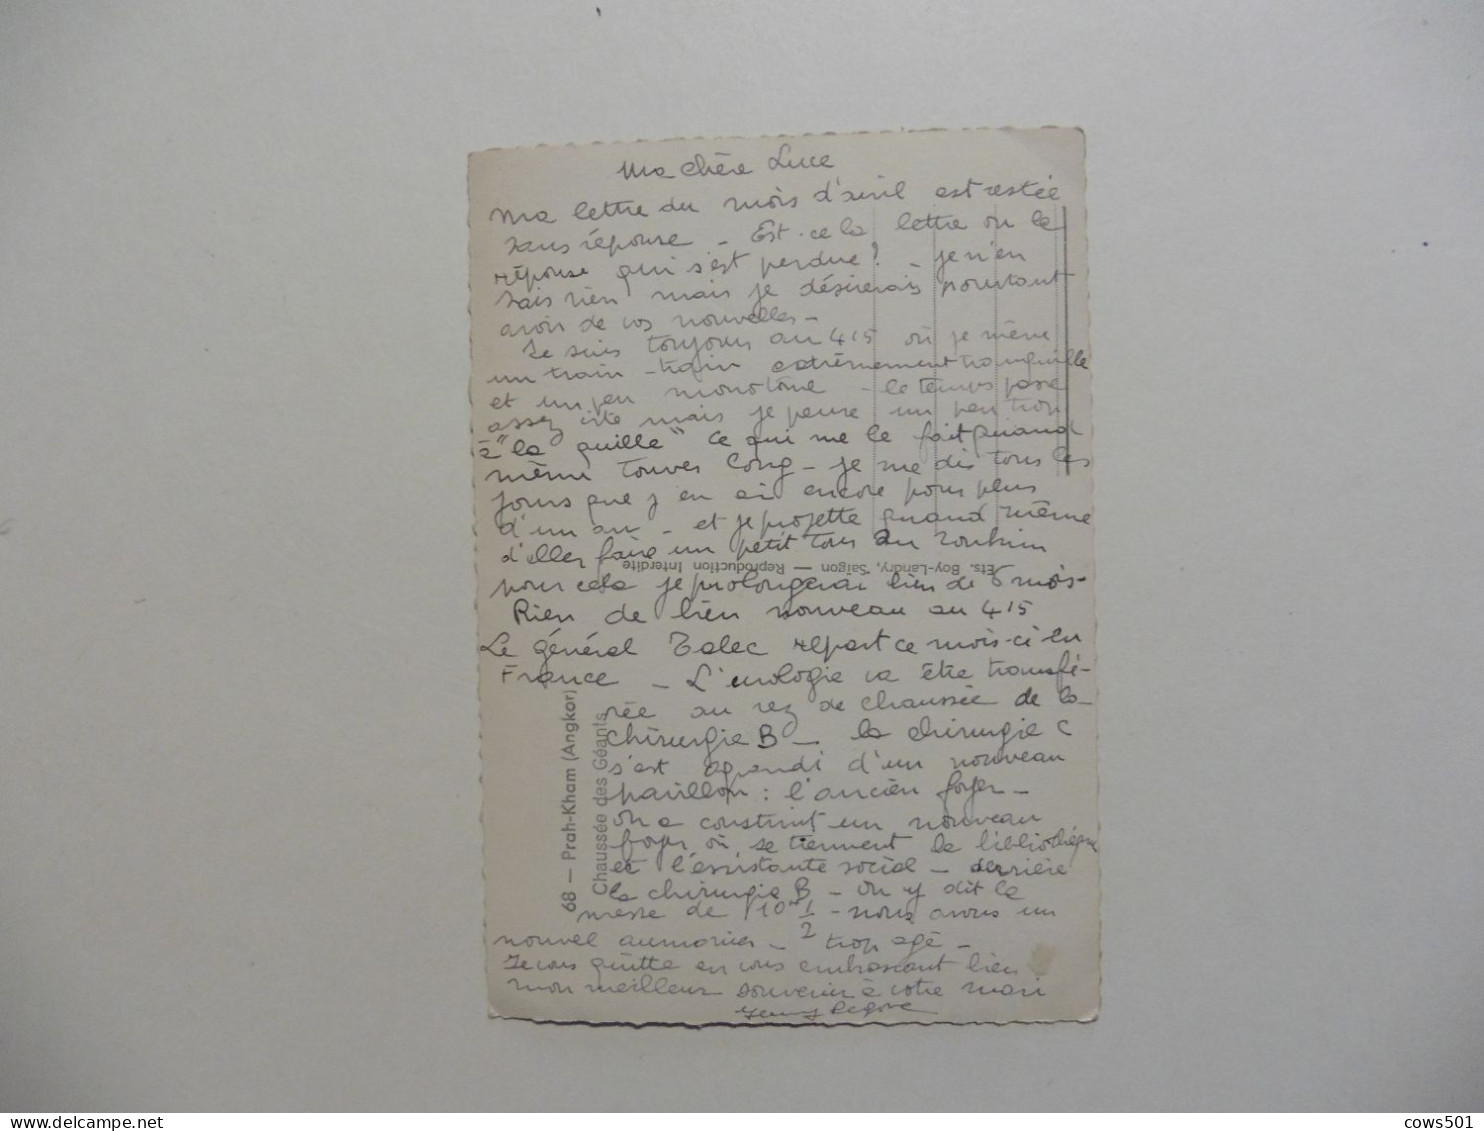 Ma chère Luce
Ma lettre du mois d'avril est restée
sans réponse - Est-ce la lettre ou la
réponse qui s'est perdue? - je n'en
sais rien mais je désirerais pourtant
avoir de vos nouvelles -
Je suis toujours au 415 où je mène
un train-train extrêmement tranquille
et un peu monotone - le temps passe
assez vite mais je pense un peu trop
à "la quille" ce qui me le fait quand
même trouver long - je me dis tous les
jours que j'en ai encore pour plus
d'un an - et je projette quand même
d'aller faire un petit tour au Tonkin
pour cela je prolongerai bien de 6 mois -
Rien de bien nouveau au 415
Le général Talec repart ce mois-ci en
France - L'urologie va être transfé-
rée au rez de chaussée de la
chirurgie B - la chirurgie C
s'est agrandi d'un nouveau
pavillon : l'ancien foyer -
on a construit un nouveau
foyer où se tiennent la bibliothèque
et l'assistante social - derrière
la chirurgie B - on y dit la
messe de 10h 1/2 - nous avons un
nouvel aumonier - trop agé -
Je vous quitte en vous embrassant bien
mon meilleur souvenir à votre mari
Ets. Boy-Landry, Saigon — Reproduction Interdite
68 — Prah-Kham (Angkor)
Chaussée des Géants
www.delcampe.net
cows501